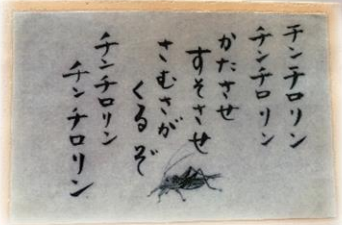 チンチロリン
チンチロリン
かたさせ
すそさせ
さむさが
くるぞ
チンチロリン
チンチロリン